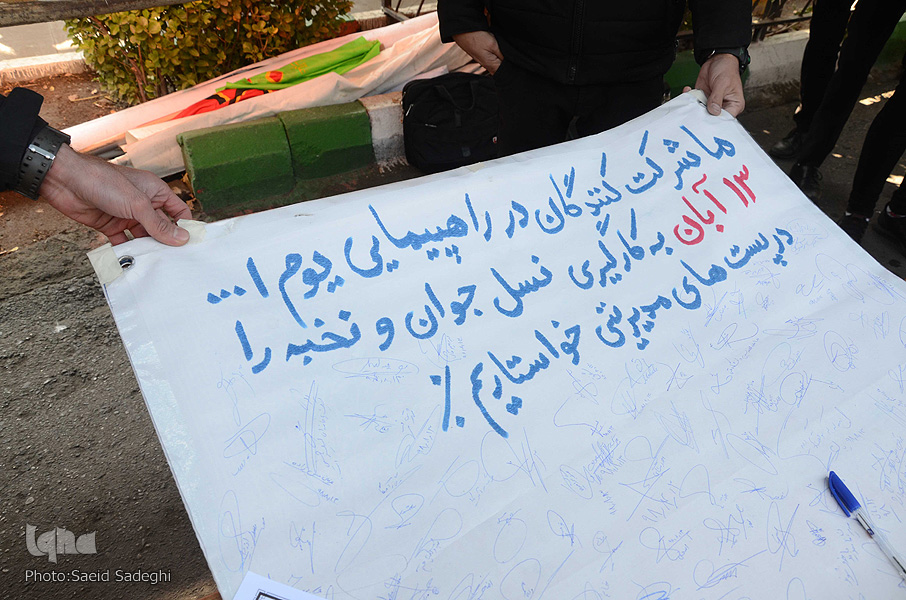 ما شرکت کنندگان در راهپیمایی یوم ا...
۱۳ آبان به کارگیری نسل جوان و نخبه را
در پست های مدیریتی خواستاریم ٪
iqna
Photo:Saeid Sadeghi